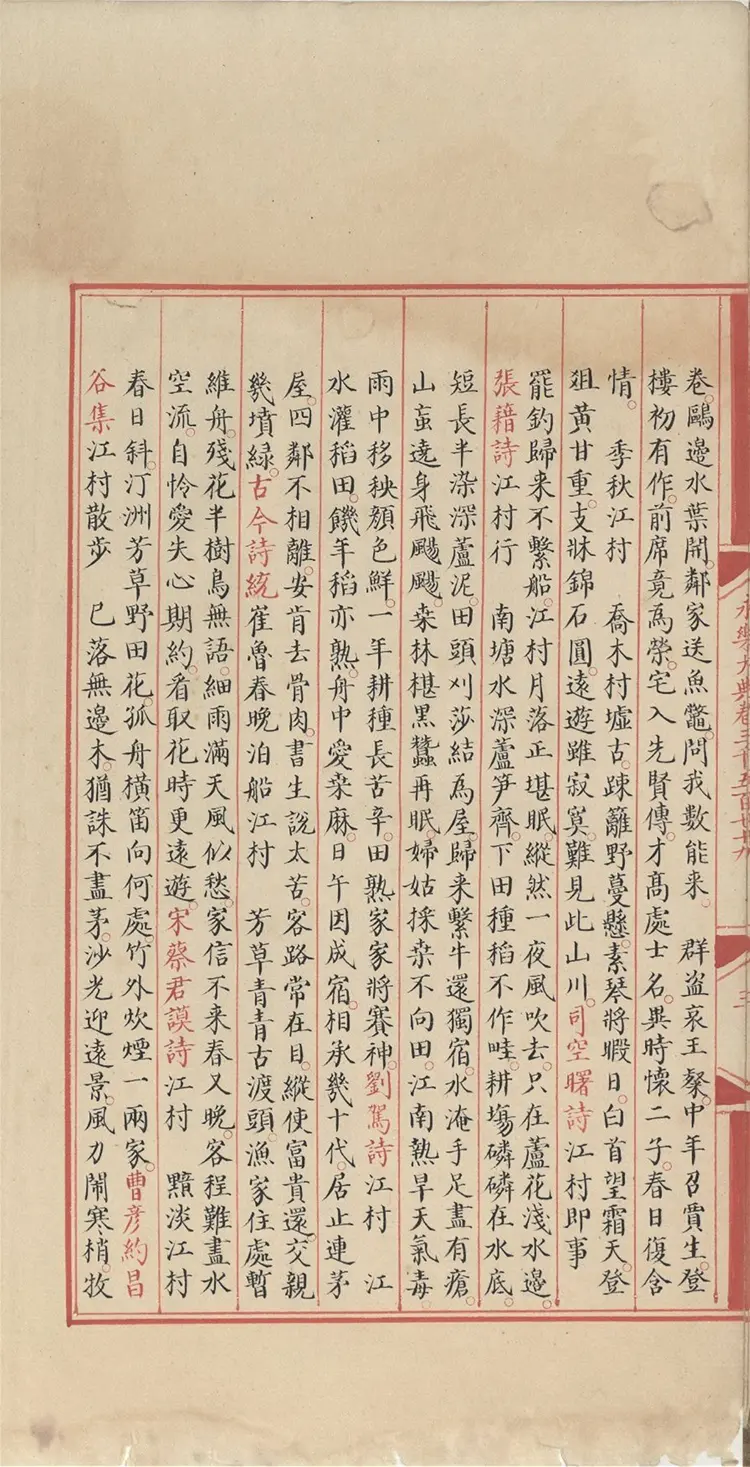 永樂大典卷三千五百七十九 三
卷。鷗邊水葉開。鄰家送魚鼈。問我數能来。 群盜哀王粲。中年召賈生。登
樓初有作。前席竟為榮。宅入先賢傳。才髙處士名。異時懷二子。春日復含
情。 季秋江村 喬木村墟古。踈籬野蔓懸。素琴將暇日。白首望霜天。登
爼黄甘重。支牀錦石圓。遠遊雖寂寞。難見此山川。司空曙詩江村即事
罷釣歸来不繫船。江村月落正堪眠。縱然一夜風吹去。只在蘆花淺水邉。
張籍詩江村行 南塘水深蘆笋齊。下田種稻不作畦。耕塲磷磷在水底。
短長半染深蘆泥。田頭刈莎結為屋。歸来繫牛還獨宿。水淹手足盡有瘡。
山䖟遶身飛颺颺。桒林椹黒蠶再眠。婦姑採桒不向田。江南熟旱天氣毒。
雨中移秧顔色鮮。一年耕種長苦辛。田熟家家將賽神。劉駕詩江村 江
水灌稻田。饑年稻亦熟。舟中愛桒麻。日午因成宿。相承幾十代。居止連茅
屋。四鄰不相離。安肯去骨肉。書生說太苦。客路常在目。縱使富貴還。交親
幾墳緑。古今詩統崔魯春晚泊船江村 芳草青青古渡頭。漁家住處暫
維舟。殘花半樹鳥無語。細雨滿天風似愁。家信不来春又晚。客程難盡水
空流。自怜愛失心期約。看取花時更遠遊。宋蔡君謨詩江村 黯淡江村
春日斜。汀洲芳草野田花。孤舟橫笛向何處。竹外炊煙一兩家。曹彦約昌
谷集江村散步 已落無邉木。猶誅不盡茅。沙光迎遠景。風力鬧寒梢。牧